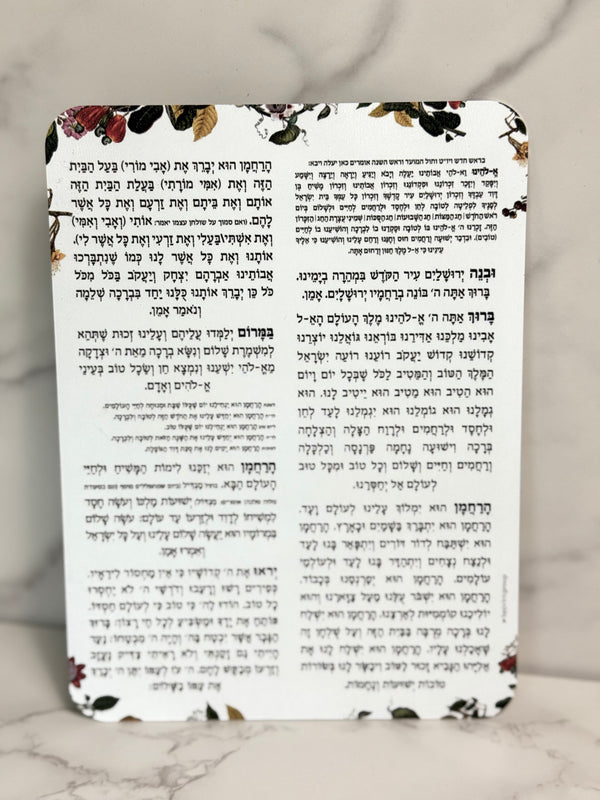 בראש חדש וימים טובים וחול המועד וראש השנה אומרים כאן יעלה ויבא:
א-לֹהֵינוּ וֵא-לֹהֵי אֲבוֹתֵינוּ יַעֲלֶה וְיָבֹא וְיַגִּיעַ וְיֵרָאֶה וְיֵרָצֶה וְיִשָּׁמַע
וְיִפָּקֵד וְיִזָּכֵר זִכְרוֹנֵנוּ וּפִקְדוֹנֵנוּ וְזִכְרוֹן אֲבוֹתֵינוּ וְזִכְרוֹן מָשִׁיחַ בֶּן
דָּוִד עַבְדֶּךָ וְזִכְרוֹן יְרוּשָׁלַיִם עִיר קָדְשֶׁךָ וְזִכְרוֹן כָּל עַמְּךָ בֵּית יִשְׂרָאֵל
לְפָנֶיךָ לִפְלֵיטָה לְטוֹבָה לְחֵן וּלְחֶסֶד וּלְרַחֲמִים לְחַיִּים וּלְשָׁלוֹם בְּיוֹם
רֹאשׁ הַחֹדֶשׁ | חַג הַמַּצּוֹת | חַג הַשָּׁבוּעוֹת | חַג הַסֻּכּוֹת | שְׁמִינִי עֲצֶרֶת הַחַג | הַזִּכָּרוֹן
הַזֶּה. זָכְרֵנוּ ה' א-לֹהֵינוּ בּוֹ לְטוֹבָה וּפָקְדֵנוּ בוֹ לִבְרָכָה וְהוֹשִׁיעֵנוּ בוֹ לְחַיִּים
(טוֹבִים). וּבִדְבַר יְשׁוּעָה וְרַחֲמִים חוּס וְחָנֵּנוּ וְרַחֵם עָלֵינוּ וְהוֹשִׁיעֵנוּ כִּי אֵלֶיךָ
עֵינֵינוּ כִּי א-ל מֶלֶךְ חַנּוּן וְרַחוּם אָתָּה.
וּבְנֵה יְרוּשָׁלַיִם עִיר הַקֹּדֶשׁ בִּמְהֵרָה בְיָמֵינוּ.
בָּרוּךְ אַתָּה ה' בּוֹנֵה בְרַחֲמָיו יְרוּשָׁלָיִם. אָמֵן.
בָּרוּךְ אַתָּה ה' א-לֹהֵינוּ מֶלֶךְ הָעוֹלָם הָאֵ-ל
אָבִינוּ מַלְכֵּנוּ אַדִּירֵנוּ בּוֹרְאֵנוּ גּוֹאֲלֵנוּ יוֹצְרֵנוּ
קְדוֹשֵׁנוּ קְדוֹשׁ יַעֲקֹב רוֹעֵנוּ רוֹעֵה יִשְׂרָאֵל
הַמֶּלֶךְ הַטּוֹב וְהַמֵּטִיב לַכֹּל שֶׁבְּכָל יוֹם וָיוֹם
הוּא הֵטִיב הוּא מֵטִיב הוּא יֵיטִיב לָנוּ. הוּא
גְמָלָנוּ הוּא גוֹמְלֵנוּ הוּא יִגְמְלֵנוּ לָעַד לְחֵן
וּלְחֶסֶד וּלְרַחֲמִים וּלְרֶוַח הַצָּלָה וְהַצְלָחָה
בְּרָכָה וִישׁוּעָה נֶחָמָה פַּרְנָסָה וְכַלְכָּלָה
וְרַחֲמִים וְחַיִּים וְשָׁלוֹם וְכָל טוֹב וּמִכָּל טוּב
לְעוֹלָם אַל יְחַסְּרֵנוּ.
הָרַחֲמָן הוּא יִמְלוֹךְ עָלֵינוּ לְעוֹלָם וָעֶד.
הָרַחֲמָן הוּא יִתְבָּרַךְ בַּשָּׁמַיִם וּבָאָרֶץ. הָרַחֲמָן
הוּא יִשְׁתַּבַּח לְדוֹר דּוֹרִים וְיִתְפָּאַר בָּנוּ לָעַד
וּלְנֵצַח נְצָחִים וְיִתְהַדַּר בָּנוּ לָעַד וּלְעוֹלְמֵי
עוֹלָמִים. הָרַחֲמָן הוּא יְפַרְנְסֵנוּ בְּכָבוֹד.
הָרַחֲמָן הוּא יִשְׁבֹּר עֻלֵּנוּ מֵעַל צַוָּארֵנוּ וְהוּא
יוֹלִיכֵנוּ קוֹמְמִיּוּת לְאַרְצֵנוּ. הָרַחֲמָן הוּא יִשְׁלַח
לָנוּ בְּרָכָה מְרֻבָּה בַּבַּיִת הַזֶּה וְעַל שֻׁלְחָן זֶה
שֶׁאָכַלְנוּ עָלָיו. הָרַחֲמָן הוּא יִשְׁלַח לָנוּ אֶת
אֵלִיָּהוּ הַנָּבִיא זָכוּר לַטּוֹב וִיבַשֵּׂר לָנוּ בְּשׂוֹרוֹת
טוֹבוֹת יְשׁוּעוֹת וְנֶחָמוֹת.
הָרַחֲמָן הוּא יְבָרֵךְ אֶת (אָבִי מוֹרִי) בַּעַל הַבַּיִת
הַזֶּה וְאֶת (אִמִּי מוֹרָתִי) בַּעֲלַת הַבַּיִת הַזֶּה
אוֹתָם וְאֶת בֵּיתָם וְאֶת זַרְעָם וְאֶת כָּל אֲשֶׁר
לָהֶם. (ואם סמוך על שולחן עצמו יאמר: אוֹתִי (וְאָבִי וְאִמִּי)
וְאֶת אִשְׁתִּי/בַּעְלִי וְאֶת זַרְעִי וְאֶת כָּל אֲשֶׁר לִי).
אוֹתָנוּ וְאֶת כָּל אֲשֶׁר לָנוּ כְּמוֹ שֶׁנִּתְבָּרְכוּ
אֲבוֹתֵינוּ אַבְרָהָם יִצְחָק וְיַעֲקֹב בַּכֹּל מִכֹּל
כֹּל כֵּן יְבָרֵךְ אוֹתָנוּ כֻּלָּנוּ יַחַד בִּבְרָכָה שְׁלֵמָה
וְנֹאמַר אָמֵן.
בַּמָּרוֹם יְלַמְּדוּ עֲלֵיהֶם וְעָלֵינוּ זְכוּת שֶׁתְּהֵא
לְמִשְׁמֶרֶת שָׁלוֹם וְנִשָּׂא בְרָכָה מֵאֵת ה' וּצְדָקָה
מֵאֱ-לֹהֵי יִשְׁעֵנוּ וְנִמְצָא חֵן וְשֵׂכֶל טוֹב בְּעֵינֵי
אֱ-לֹהִים וְאָדָם.
הָרַחֲמָן הוּא יַנְחִילֵנוּ יוֹם שֶׁכֻּלּוֹ שַׁבָּת וּמְנוּחָה לְחַיֵּי הָעוֹלָמִים.
הָרַחֲמָן הוּא יְחַדֵּשׁ עָלֵינוּ אֶת הַחֹדֶשׁ הַזֶּה לְטוֹבָה וְלִבְרָכָה.
הָרַחֲמָן הוּא יַנְחִילֵנוּ יוֹם שֶׁכֻּלּוֹ טוֹב.
הָרַחֲמָן הוּא יְחַדֵּשׁ עָלֵינוּ אֶת הַשָּׁנָה הַזֹּאת לְטוֹבָה וְלִבְרָכָה.
הָרַחֲמָן הוּא יָקִים לָנוּ אֶת סֻכַּת דָּוִד הַנּוֹפָלֶת.
הָרַחֲמָן הוּא יְזַכֵּנוּ לִימוֹת הַמָּשִׁיחַ וּלְחַיֵּי
הָעוֹלָם הַבָּא. בחול מַגְדִּיל
מִגְדּוֹל יְשׁוּעוֹת מַלְכּוֹ וְעֹשֶׂה חֶסֶד
לִמְשִׁיחוֹ לְדָוִד וּלְזַרְעוֹ עַד עוֹלָם: עֹשֶׂה שָׁלוֹם
בִּמְרוֹמָיו הוּא יַעֲשֶׂה שָׁלוֹם עָלֵינוּ וְעַל כָּל יִשְׂרָאֵל
וְאִמְרוּ אָמֵן.
יְראוּ אֶת ה' קְדוֹשָׁיו כִּי אֵין מַחְסוֹר לִירֵאָיו.
כְּפִירִים רָשׁוּ וְרָעֵבוּ וְדוֹרְשֵׁי ה' לֹא יַחְסְרוּ
כָל טוֹב. הוֹדוּ לַה' כִּי טוֹב כִּי לְעוֹלָם חַסְדּוֹ.
פּוֹתֵחַ אֶת יָדֶךָ וּמַשְׂבִּיעַ לְכָל חַי רָצוֹן: בָּרוּךְ
הַגֶּבֶר אֲשֶׁר יִבְטַח בַּה' וְהָיָה ה' מִבְטַחוֹ: נַעַר
הָיִיתִי גַם זָקַנְתִּי וְלֹא רָאִיתִי צַדִּיק נֶעֱזָב
וְזַרְעוֹ מְבַקֶּשׁ לָחֶם. ה' עֹז לְעַמּוֹ יִתֵּן ה' יְבָרֵךְ
אֶת עַמּוֹ בַשָּׁלוֹם: